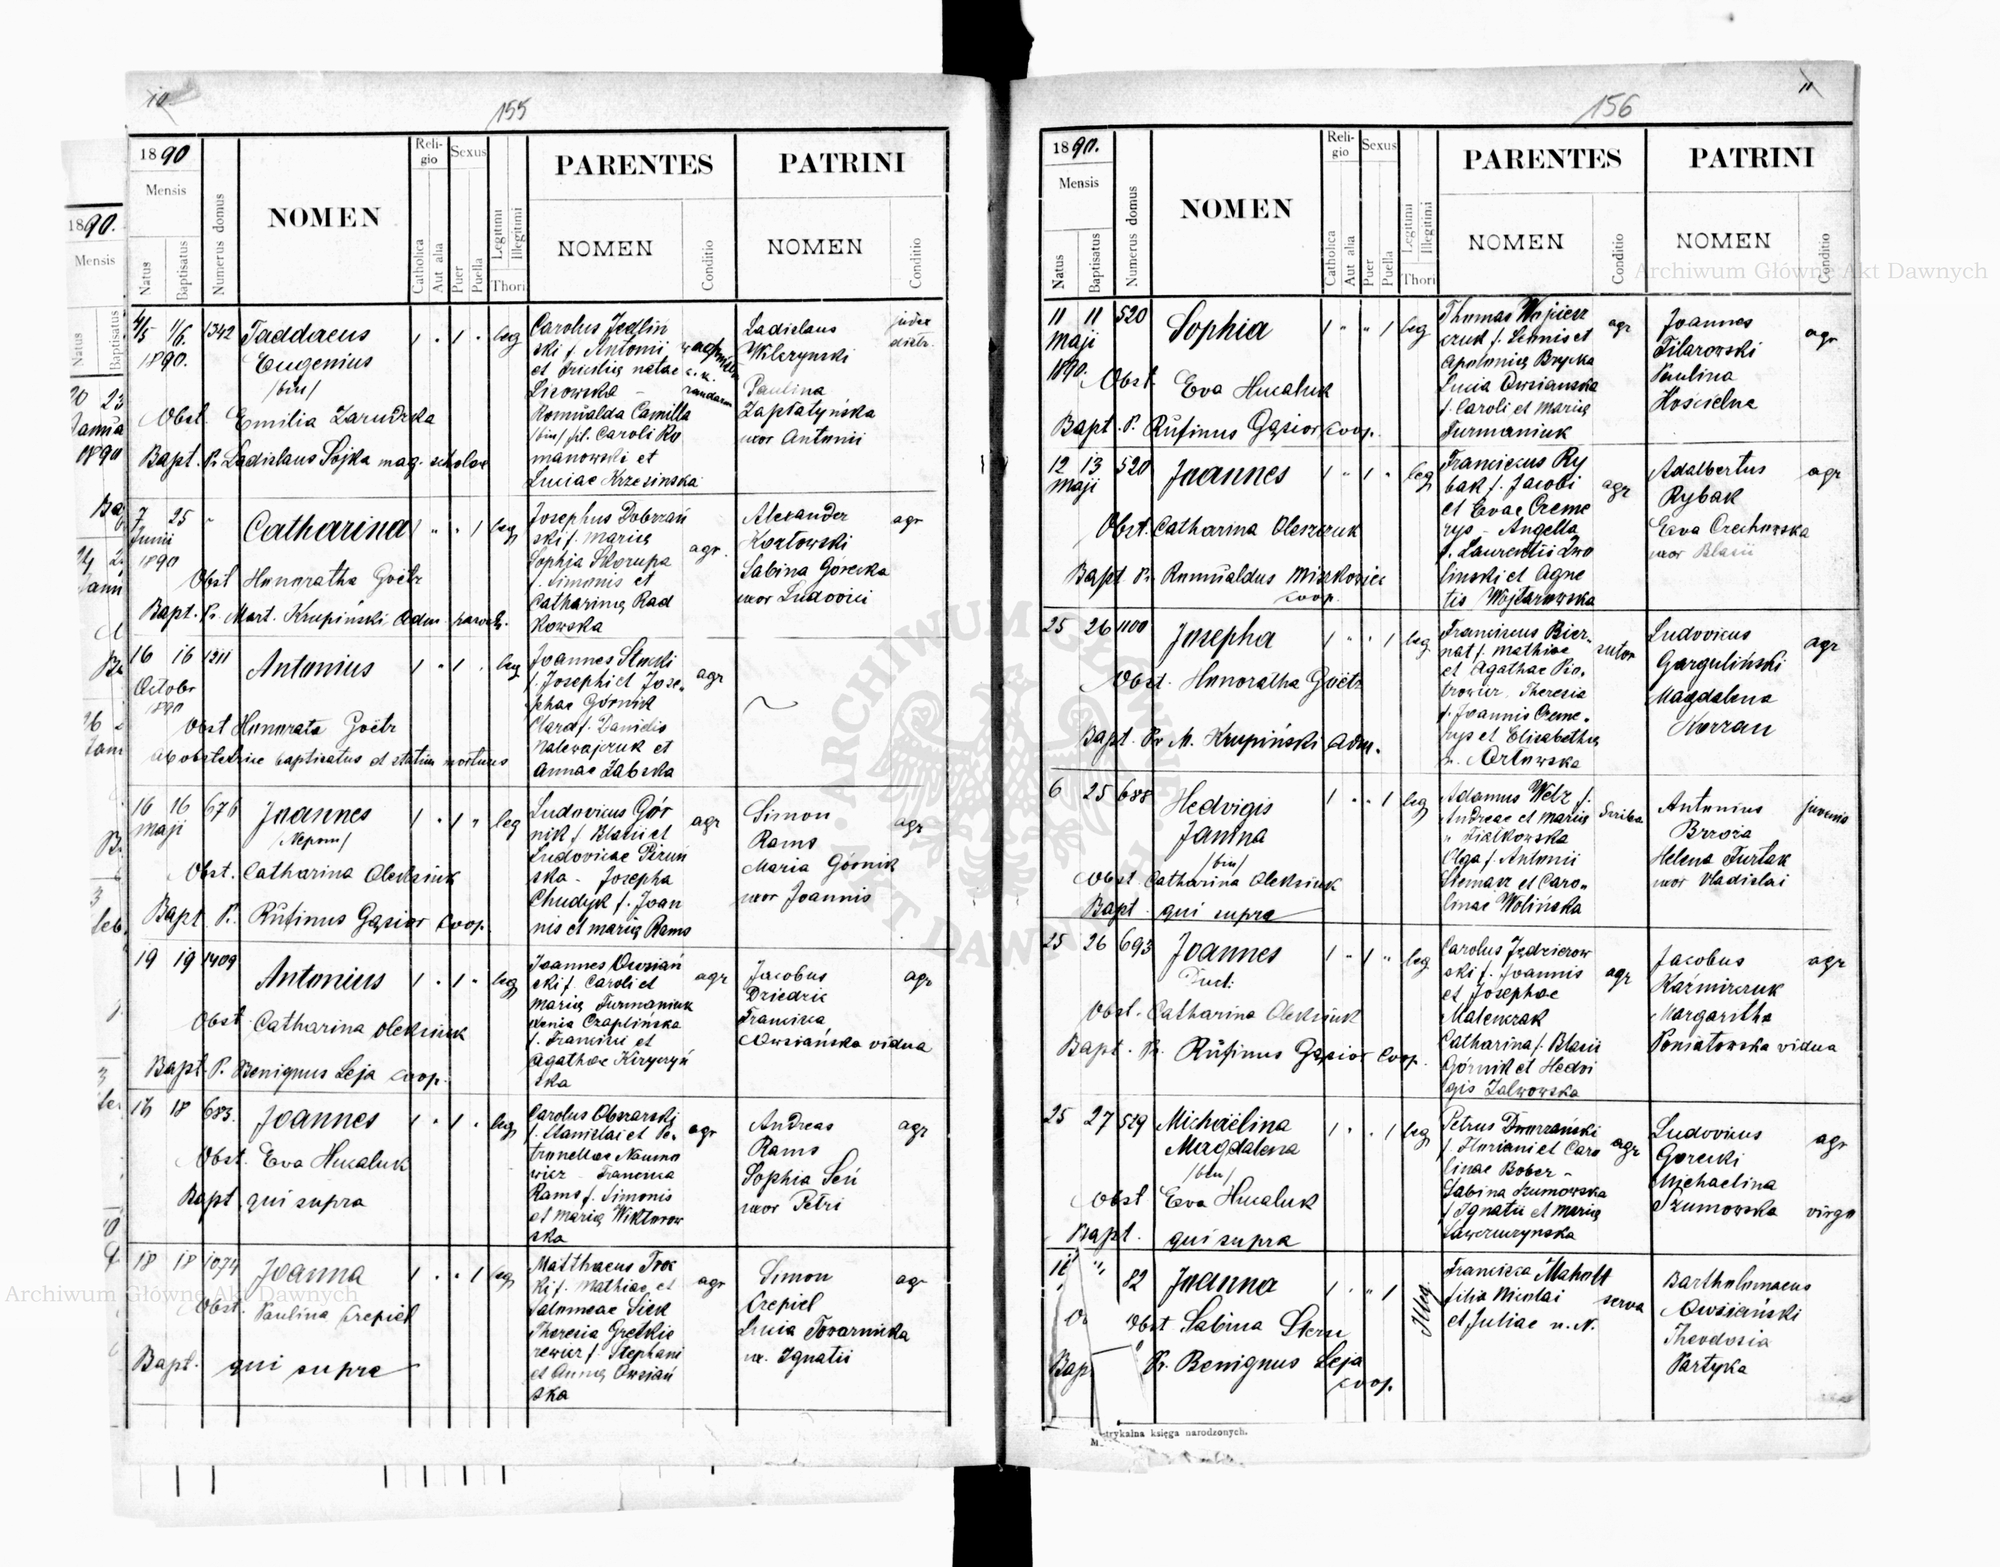 10
155
1890
Mensis
Natus
Baptisatus
Numerus domus
NOMEN
Religio
Catholica
Aut alia
Sexus
Puer
Puella
Legitimi
Illegitimi
Thori
PARENTES
NOMEN
Conditio
PATRINI
NOMEN
Conditio
4/5 1/6. 1342 Taddaeus 1 " 1 " leg
1890. Eugenius
/bin/
Obst. Emilia Zarudzka
Bapt. Pr Ladislaus Sojka mag. scholae
Carolus Jedliń
ski f. Antonii
et Lisowska
Romualda Camilla
/bin/ fil. Caroli Ro
manowski et
Luciae Krzesinska
Ladislaus
Wilczynski
Paulina
Zaplatyńska
uxor Antonii
7 25 " Catharina 1 " " 1 leg
Junii
1890
Obst Honoratha Goëtz
Bapt. Pr. Mart. Krupiński Adm. paroch.
Josephus Dobrzań
ski f. Mariae
Sophia Skorupa
f. Simonis et
Catharinae Rad
kowska
agr.
Alexander agr
Kozlowski
Sabina Gorecka
uxor Ludovici
16 16 1211 Antonius 1 " 1 " leg
Octobr
1890
Obst Honorata Goëtz
ab obstetrice baptisatus et statim mortuus
Joannes Slenski
f. Josephi et Jose-
phae Górnik
Clara f. Danielis
Nalewajczuk et
Annae Zabska
agr
16 16 676 Joannes 1 " 1 " leg
Maji /Nepom/
Obst. Catharina Oleksiuk
Bapt P. Rufinus Gąsior Coop.
Ludovicus Gór
nik f. Blasii et
Ludovicae Piruń
ska - Josepha
Chudyk f. Joan
nis et Mariae Rams
agr
Simon agr
Rams
Maria Górnik
uxor Joannis
19 19 1409 Antonius 1 " 1 " leg
Obst Catharina Oleksiuk
Bapt. P. Benignus Leja coop.
Joannes Owsiań
ski f. Caroli et
Mariae Furmaniuk
Xenia Czaplińska
f. Francisci et
Agathae Kizyczyń
ska
agr
Jacobus agr
Dziedzic
Francisca
Owsiańska vidua
17 18 683. Joannes 1 " 1 " leg
Obst. Eva Hucaluk
Bapt qui supra
Carolus Obszarski
f. Stanislai et Pe-
tronellae Naumo
wicz Francisca
Rams f. Simonis
et Mariae Wiktorow
ska
agr
Andreas agr
Rams
Sophia Seń
uxor Petri
18 18 1074 Joanna 1 " " 1 leg
Obst. Paulina Crepiel
Bapt. qui supra
Matthaeus Trok
ki f. Mathiae et
Salomeae Siek
Theresia Gretkie
rewicz f. Stephani
et Annae Owsiań
ska
agr
Simon agr
Crepiel
Lucia Towarnicka
ux. Ignatii
156
11
1890.
Mensis
Natus
Baptisatus
Numerus domus
NOMEN
Religio
Catholica
Aut alia
Sexus
Puer
Puella
Legitimi
Illegitimi
Thori
PARENTES
NOMEN
Conditio
PATRINI
NOMEN
Conditio
11 11 520 Sophia 1 " " 1 leg
Maji
1890.
Obst. Eva Hucaluk
Bapt. P. Rufinus Gąsior coop.
Thomas Wojciesz
czuk f. Semis et
Apoloniae Brycka
Lucia Owsianska
f. Caroli et Mariae
Furmaniuk
agr
Joannes agr
Filarowski
Paulina
Koscielna
12 13 520 Joannes 1 " 1 " leg
Maji
Obst. Catharina Oleszczuk
Bapt Pr. Romualdus Miszkowicz
coop.
Franciscus Ry
bak f. Jacobi
et Evae Creme
rys - Angella
f. Laurentii Zwo
linski et Agne
tis Wojtarowska
agr
Adalbertus agr
Rybak
Eva Orechowska
uxor Blasii
25 26 1100 Josepha 1 " " 1 leg
Obst. Honoratha Goëtz
Bapt. Pr M. Krupiński Adm.
Franciscus Bier-
nat f. Mathiae
et Agathae Pio-
trowicz, Theresia
f. Joannis Creme-
rys et Elisabethae
n. Orlowska
sutor
Ludovicus agr
Garguliński
Magdalena
Korzan
6 25 688 Hedvigis 1 " " 1 leg
Janina
/bin/
Obst Catharina Oleksiuk
Bapt. qui supra
Adamus Welz f.
Andreae et Mariae
Fialkowska
Olga f. Antonii
Slemarz et Caro-
linae Wolińska
scriba
Antonius juvenis
Brzoza
Helena Furtak
uxor Vladislai
25 26 693 Joannes 1 " 1 " leg
Obst. Catharina Oleksiuk
Bapt. Pr. Rufinus Gąsior Coop.
Carolus Jędrzejow
ski f. Joannis
et Josephae
Malenczak
Catharina f. Blasii
Górnik et Hedvi
gis Zalwowska
agr
Jacobus agr
Kaźmirczuk
Margaritha
Poniatowska vidua
25 27 529 Michaëlina 1 " " 1 leg
Magdalena
/bin/
Obst Eva Hucaluk
Bapt. qui supra
Petrus Dworzański
f. Floriani et Caro
linae Bober -
Sabina Szumowska
f Ignatii et Mariae
Lawruczynska
agr
Ludovicus agr
Gorecki
Michaelina
Szumowska virgo
82 Joanna 1 " " 1 Illeg
Obst Sabina Stern
Bap Pr. Benignus Leja
coop.
Francisca Maholt
filia Nicolai
et Juliae n. N.
serva
Bartholomaeus
Owsianski
Theodosia
Partyka
trykalna księga narodzonych.
1890.
Mensis
Natus
Baptisatus
20 23
Janua
1890
Archiwum Główne Akt Dawnych
Archiwum Główne Akt Dawnych
ARCHIWUM GŁÓWNE AKT DAWNYCH